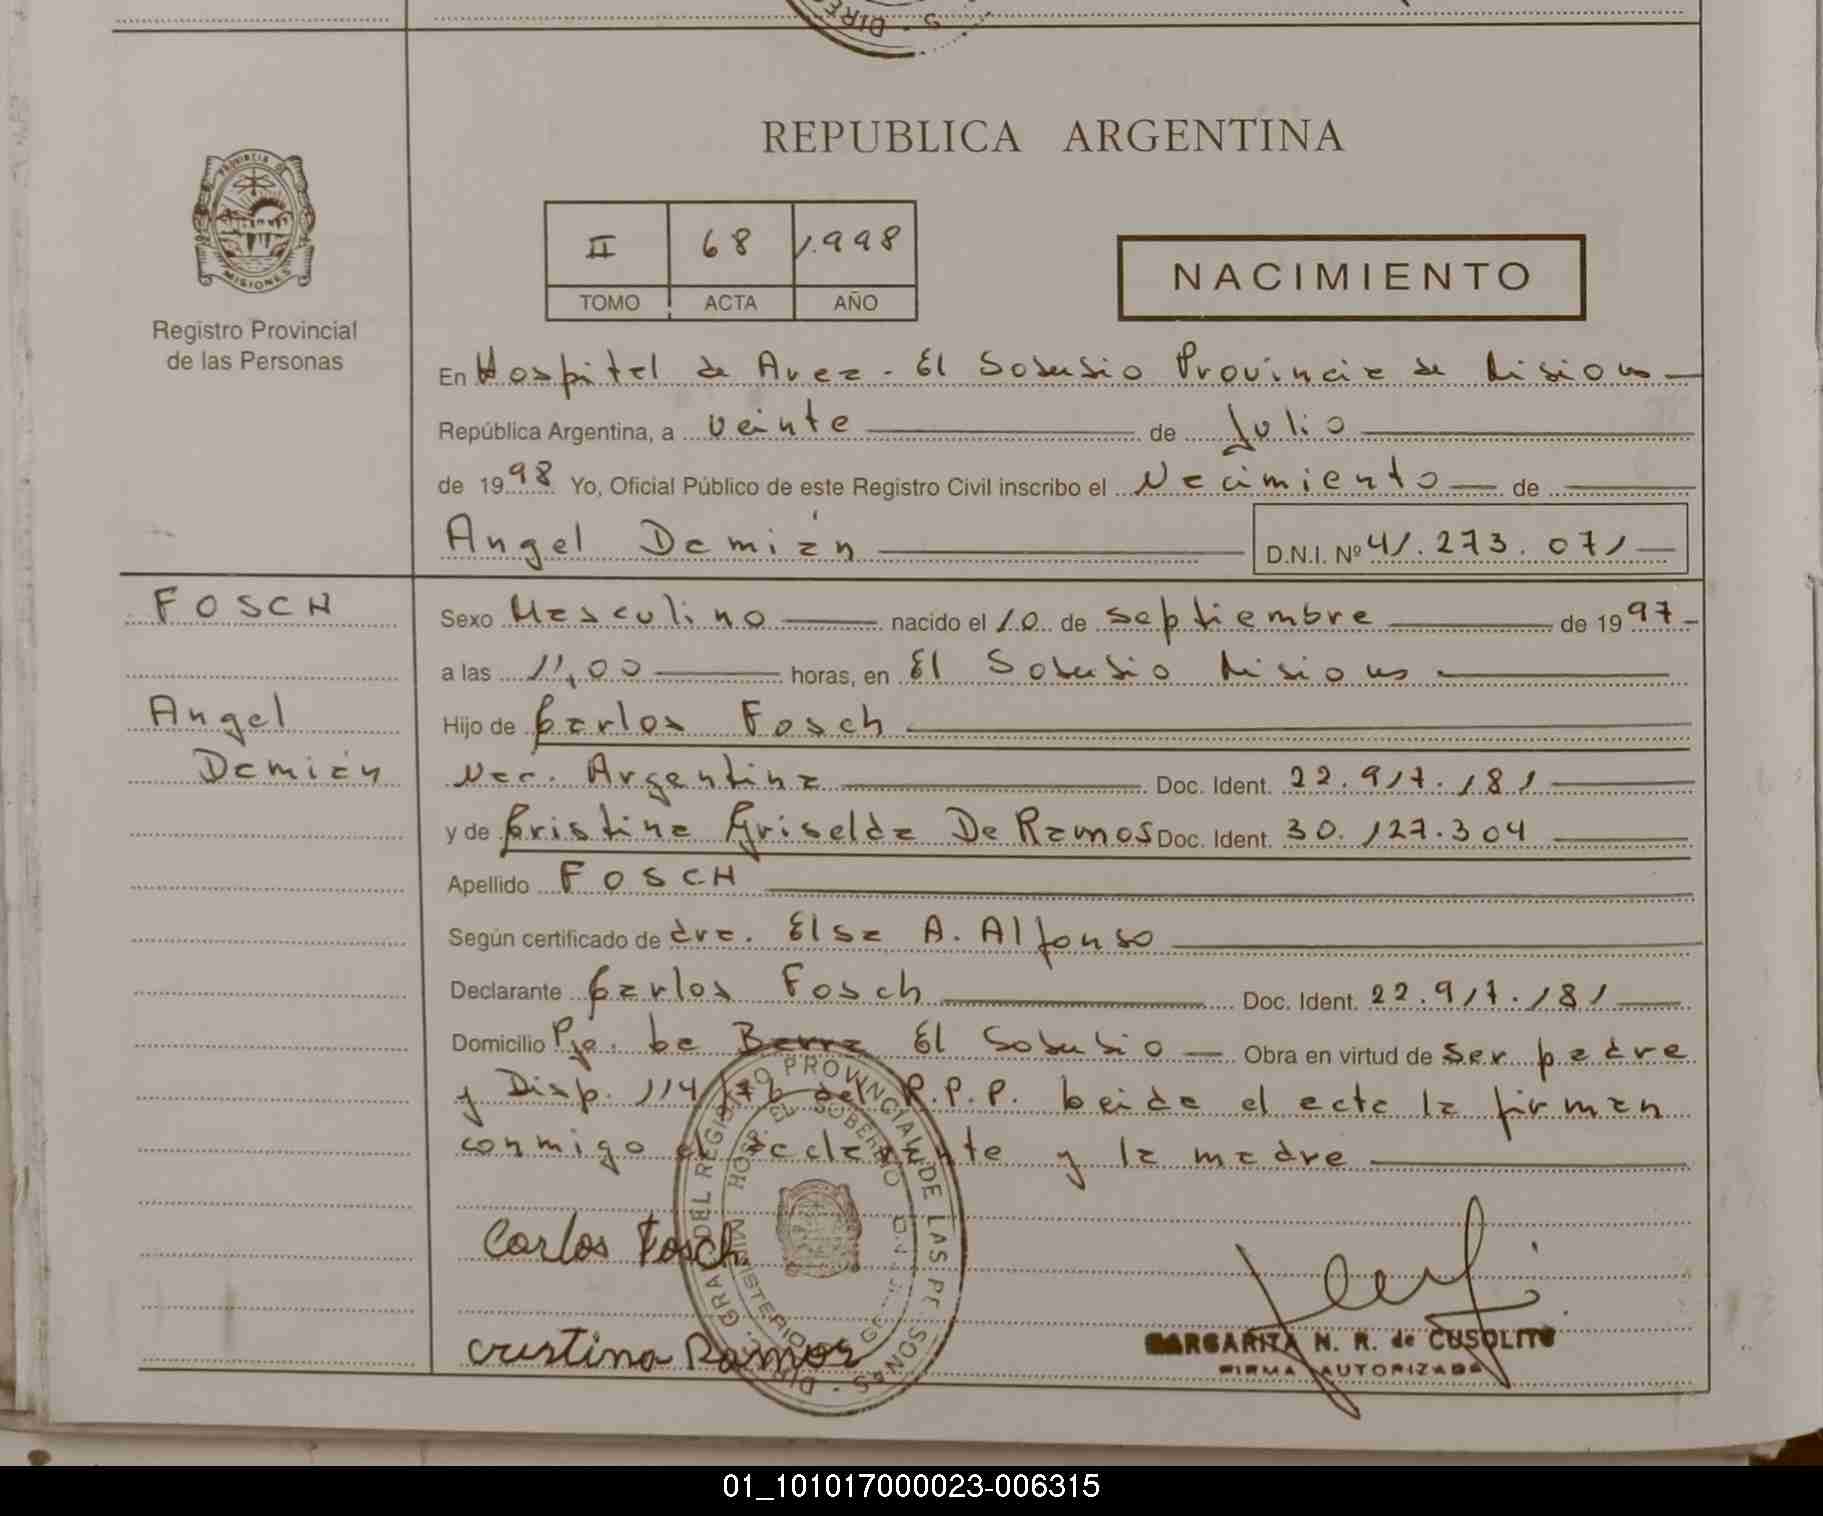 DIREC
REPUBLICA ARGENTINA
PROVINCIA DE
MISIONES
Registro Provincial
de las Personas
II 68 1.998
TOMO ACTA AÑO
NACIMIENTO
En Hospital de Area - El Soberbio Provincia de Misiones
República Argentina, a veinte de Julio
de 1998 Yo, Oficial Público de este Registro Civil inscribo el Nacimiento de
Angel Demián D.N.I. Nº 41.273.071
FOSCH
Angel
Demián
Sexo Masculino nacido el 10 de septiembre de 1997
a las 11,00 horas, en El Soberbio Misiones
Hijo de Carlos Fosch
Nac. Argentina Doc. Ident. 22.917.181
y de Cristina Griselda De Ramos Doc. Ident. 30.127.304
Apellido FOSCH
Según certificado de dra. Elsa A. Alfonso
Declarante Carlos Fosch Doc. Ident. 22.917.181
Domicilio Pje. La Barra El Soberbio Obra en virtud de ser padre
y Disp. 114/76 del R.P.P. Leida el acta la firman
conmigo el declarante y la madre
DEL REGISTRO PROVINCIAL DE LAS PERSONAS
HOSP. EL SOBERBIO
MINISTERIO
Carlos Fosch
Cristina Ramos
MARGARITA N. R. de CUSOLITO
FIRMA AUTORIZADA
01_101017000023-006315